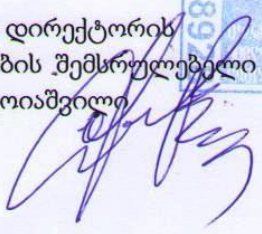 დირექტორის
ბის შემსრულებელი
ოიაშვილი
892